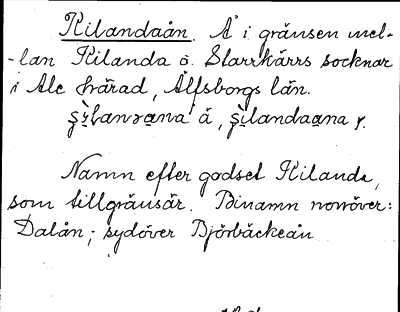 Kilandaån. Å i gränsen mel-
-lan Kilanda o. Starrkärrs socknar
i Ale härad, Älfsborgs län.
å,
Namn efter godset Kilanda,
som tillgränsar. Binamn norröver:
Dalån; sydöver Björbäckeån